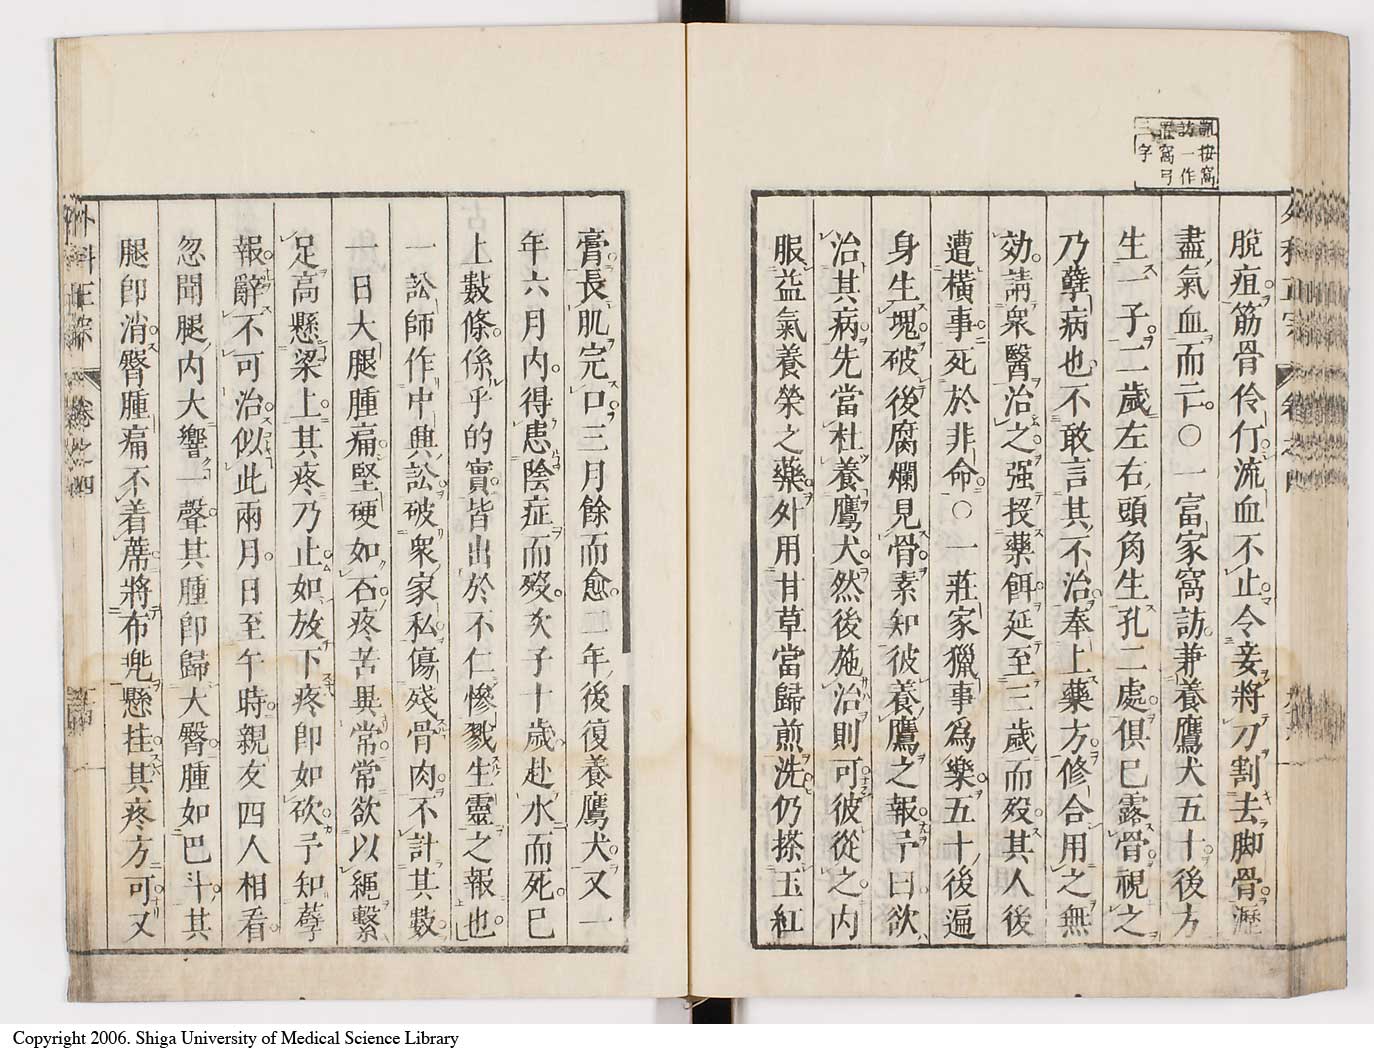 凱按窩
訪一作
窩弓
二字
脫疽筋骨伶仃流血不止令妾將刀割去脚骨瀝
盡氣血而亡○一富家窩訪兼養鷹犬五十後方
生一子二歲左右頭角生孔二處俱已露骨視之
乃孽病也不敢言其不治奉上藥方修合用之無
効請衆醫治之强投藥餌延至三歲而歿其人後
遭橫事死於非命○一莊家獵事爲樂五十後遍
身生塊破後腐爛見骨素知彼養鷹之報予曰欲
治其病先當杜養鷹犬然後施治則可彼從之内
服益氣養榮之藥外用甘草當歸煎洗仍搽玉紅
膏長肌完口三月餘而愈二年後復養鷹犬又一
年六月内得患陰症而歿亥子十歲赴水而死已
上數條係乎的實皆出於不仁慘戮生靈之報也
一訟師作中興訟破衆家私傷殘骨肉不計其數
一日大腿腫痛堅硬如石疼苦異常常欲以繩繫
足高懸梁上其疼乃止如放下疼即如砍予知孽
報辭不可治似此兩月日至午時親友四人相看
忽聞腿内大響一聲其腫即歸大臀腫如巴斗其
腿即消臀腫痛不着蓆將布兜懸挂其疼方可又
外科正宗
卷之四
Copyright 2006. Shiga University of Medical Science Library